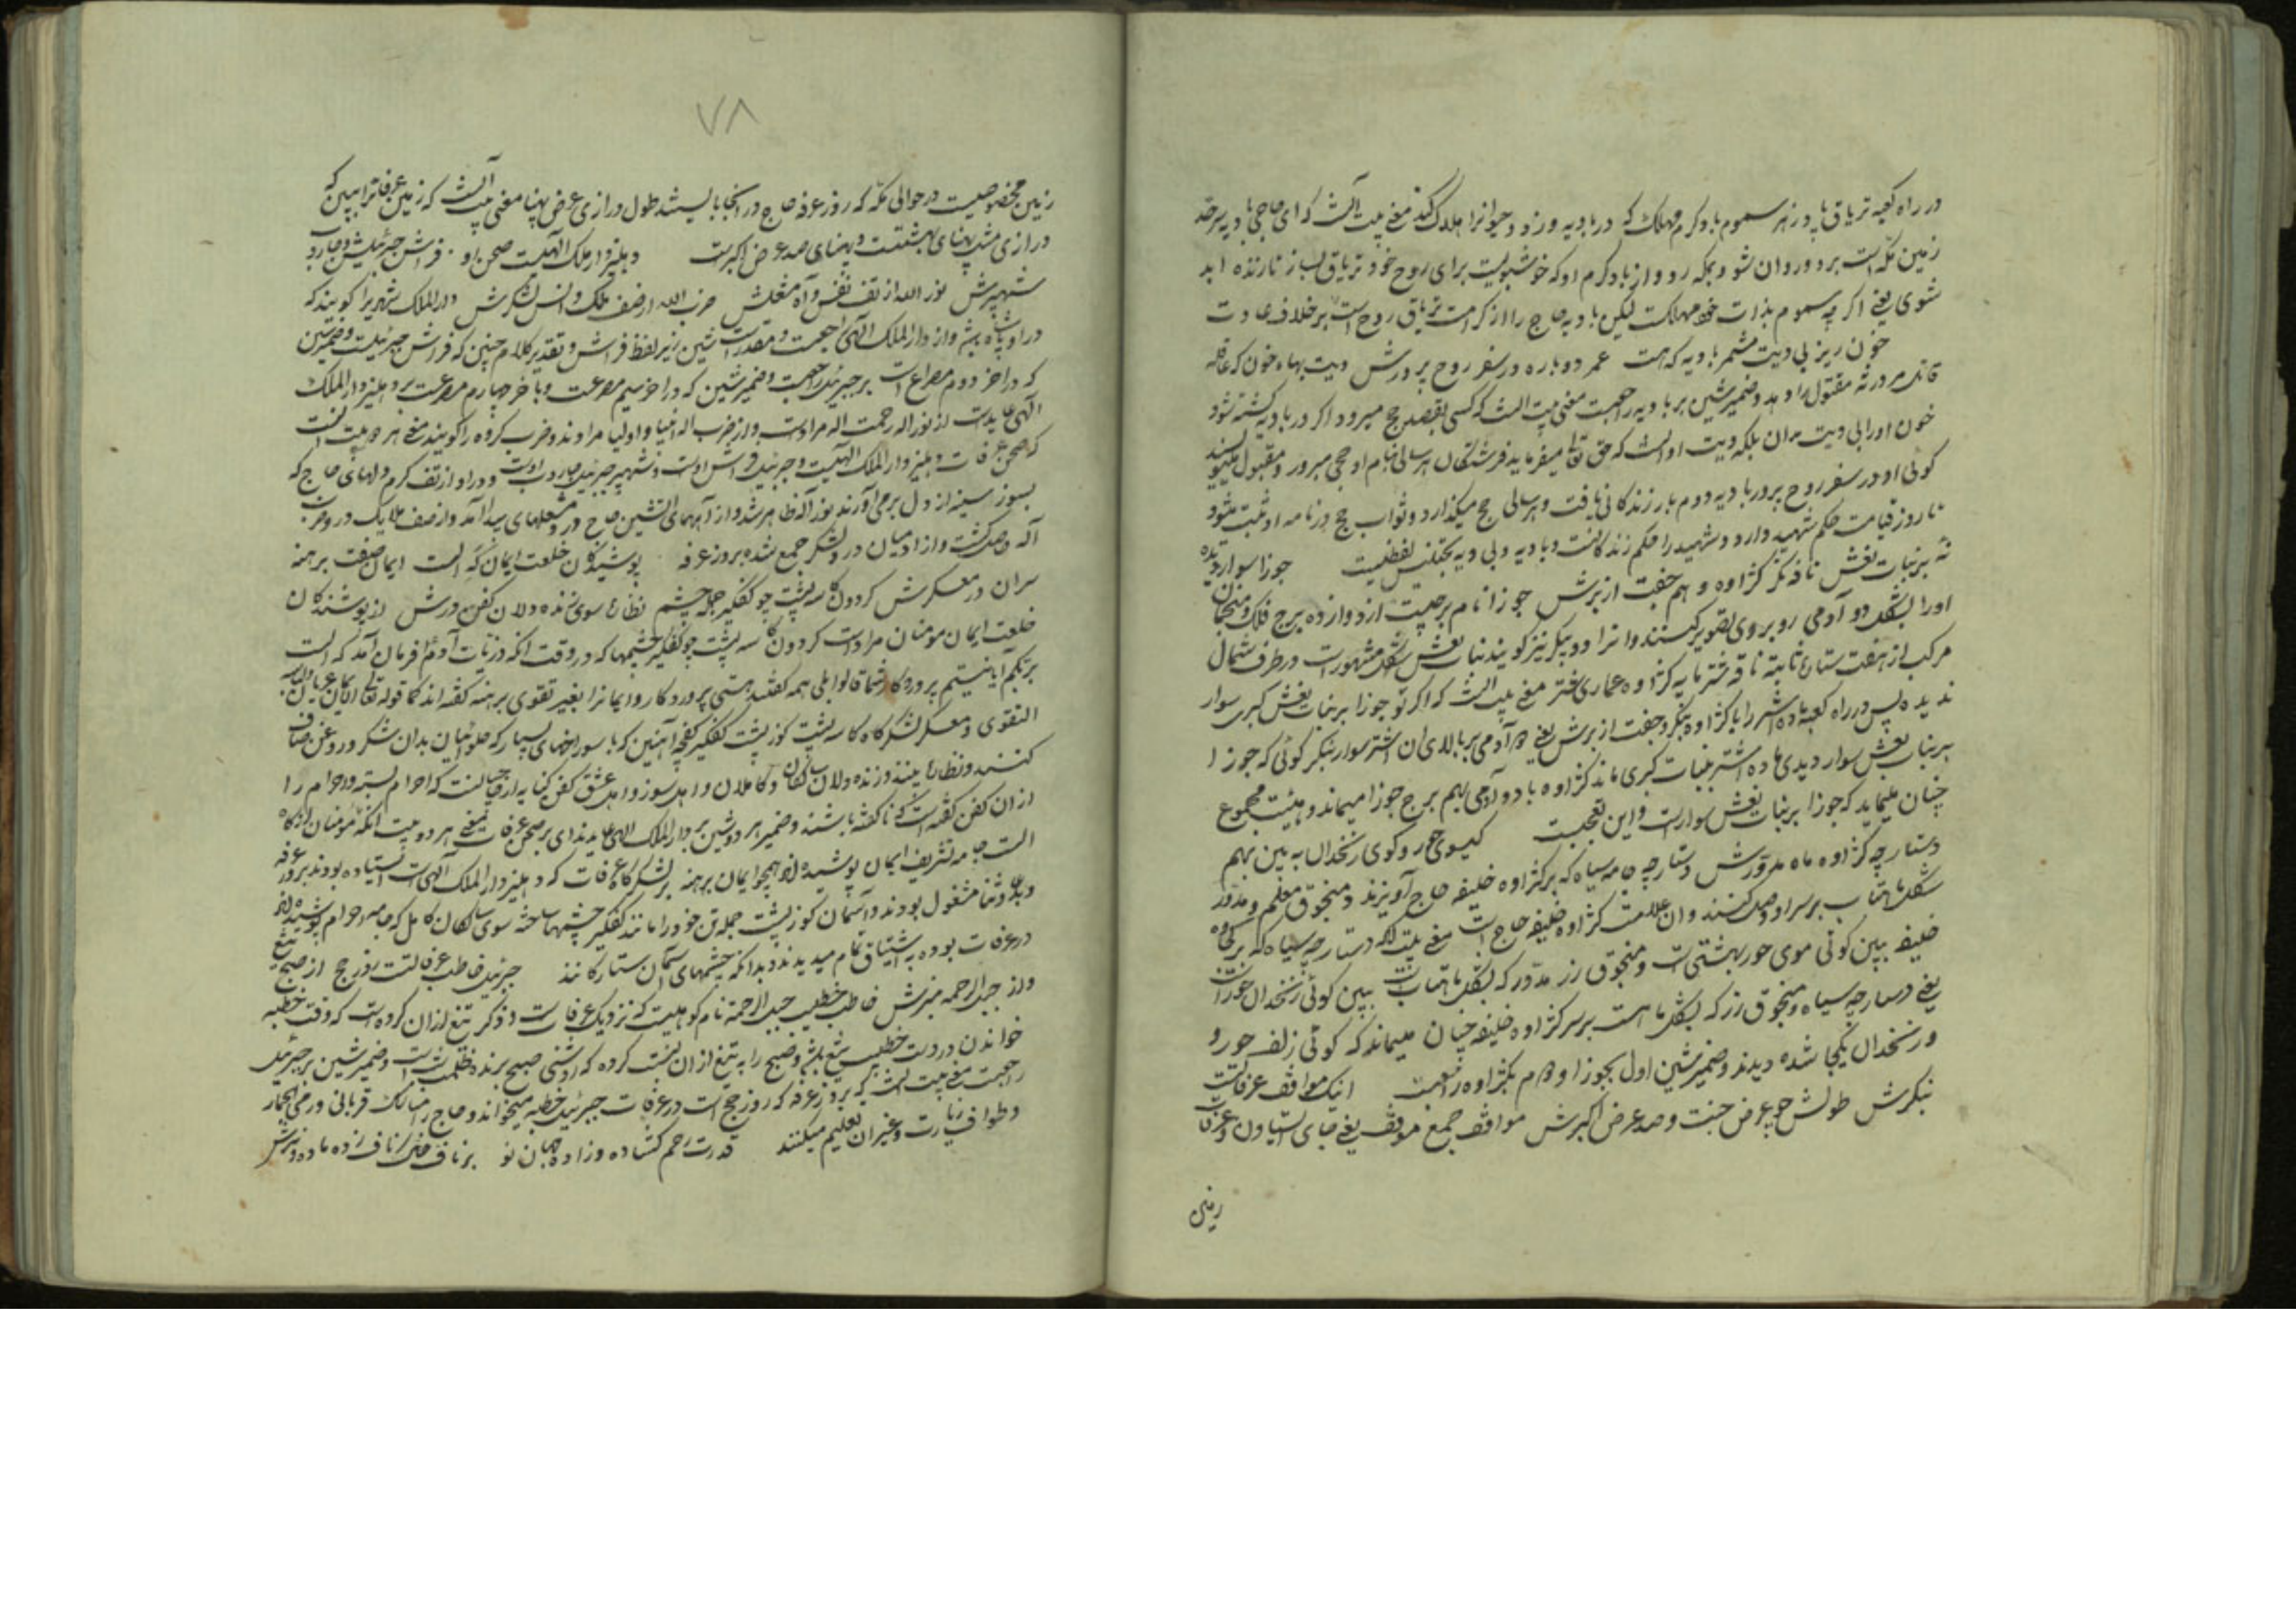 در راه کعبه تریاق باد زهر سموم باد گرم مهلک که در بادیه وزد و حیوانرا هلاک کند معنی بیت آنست که ای حاجی بادیه سرحد
زمین مکه است برو و روان شو و بمکه رو و از باد گرم او که خوشبویست برای روح خود تریاق بساز تا زنده ابد
شوی یعنی اگرچه سموم بذات خود مهلکست لیکن بادیه حاج را از کرامت تریاق روح است بر خلاف عادت
خون ریز بی دیت مشمر بادیه که هست عمر دوباره در سفر روح پرورش دیت بهاء خون که عاقله
قاتل مر ورثه مقتول را دهد و ضمیر شین بر بادیه راجعست معنی بیت آنست که کسی بقصد حج میرود اگر در بادیه کشته شود
خون او را بی دیت مدان بلکه دیت او آنست که حق تعالی میفرماید فرشتگان هر سالی بنام او حجی مبرور و مقبول مینویسند
گوئی او در سفر روح پرور بادیه دوم بار زندگانی یافت و هر سالی حج میگذارد و ثواب حج در نامه او ثبت میشود
تا روز قیامت حکم شهید دارد و شهید را حکم زندگانست و بادیه و بی دیه تجنیس لفظیست جوزا سوار دیده
نه بر بنات نعش ناقه نگر کژاوه و هم جفت از برش جوزا نام برجیست از دوازده برج فلک و منجمان
او را بشکل دو آدمی روبروی تصویر کنند و آنرا دو پیکر نیز گویند بنات نعش شکل مشهور است در طرف شمال
مرکب از هفت ستاره ثابته ناقه شتر مایه کژاوه عماری شتر معنی بیت آنست که اگر تو جوزا بر بنات نعش کبری سوار
ندیده پس در راه کعبه ماده شتر را با کژاوه بنگر و جفت از برش یعنی دو آدمی بر بالای آن اشتر سوار بنگر گوئی که جوزا
بر بنات نعش سوار دیدی ماده اشتر ببنات کبری ماند کژاوه با دو آدمی بهم برج جوزا میماند و هیئت مجموع
چنان مینماید که جوزا بر بنات نعش سوار است و این تعجبست گیسوی حور و گوی زنخدان به بین بهم
دستارچه کژاوه ماه مدورش دستارچه جامه سیاه که بر کژاوه خلیفه حاج آویزند و منجوق معلم و مدور
شکل ماهتاب بر سر او وصل کنند و آن علامت کژاوه خلیفه حاج است معنی بیت آنکه دستارچه سیاه که بر کجاوه
خلیفه ببین گوئی موی حور بهشتی است و منجوق زر مدور که بشکل ماهتابست ببین گوئی زنخدان حورانست
یعنی دستارچه سیاه و منجوق زر که بشکل ماهست بر سر کژاوه خلیفه چنان میماند که گوئی زلف حور و
و زنخدان یکجا شده دیدند و ضمیر شین اول بجوزا و دوم بکژاوه راجعست اینک مواقف عرفاتست
بنگرش طولش چو عرض جنت و صد عرض اکبرش مواقف جمع موقف یعنی جای استادن و عرفات
زمین
۷۸
زمین مخصوصیست در حوالی مکه که روز عرفه حاج در آنجا بایستند طول درازی عرض پهنا معنی بیت آنست که زمین عرفات را ببین که
درازی مثل پهنای بهشتست و پهنای صد عرض اکبرست دهلیز دار ملک الهیست صحن او فراش جبرئیلش و جاروب
شهپرش نور الله از تف نفس و آه مشعلش حزب الله از صف ملک و انس لشکرش دار الملک شهریرا گویند که
در او پادشاه باشد و از دار الملک الهی و ضمیر شین زیر لفظ فراش و تقدیر کلام چنین که فراش جبرئیلست و ضمیر شین
که در آخر دوم مصراع است بر جبرئیل راجعست و ضمیر شین که در آخر سیم مصرعست و بآخر چهارم مصرعست بر دهلیز دار الملک
الهی عایدست از نور اله رحمت اله مراد است و از حزب اله انبیا و اولیا مرادند و حزب گروه را گویند معنی هر دو بیت آنست
که صحن عرفات دهلیز دار الملک الهیست و جبرئیل فراش اوست و شهپر جبرئیل جاروب اوست و در او از تف گرم دلهای حاج که
بسوز سینه از دل برمی آورند نور اله ظاهر شد و از آههای آتشین حاج در و مشعلهای پیدا آمد و از صف ملایک در و حزب
اله وصل گشت و از آدمیان در و لشکر جمع شده بروز عرفه پوشندگان خلعت ایمان گه الست ایمان صفت برهنه
سران در معسکرش گردون کاسه پشت چو کفگیر جمله چشم نظاره سوی زنده دلان کفن ورش از پوشندگان
خلعت ایمان مومنان مراد است گردون کاسه پشت چو کفگیر چشمها که در وقت آنکه ذریات آدم را فرمان آمد که الست
بربکم آیا نیستم پروردگار شما قالوا بلی همه گفتند هستی پروردگار و ایمانرا بغیر تقوی برهنه گفته اند کما قوله تعالی الایمان عریان لباسه
التقوی و معسکر لشکرگاه کاسه پشت کوز پشت کفگیر کفچه آهنین که با سوراخهای بسیار که حلوائیان بدان شکر و روغن صاف
کنند و نظاره بینند و زنده دلان سالکان و کاملان و اهل سوز و اهل عشق کفن کنایه از حاجیانست که احرام بسته و احرام را
از آن کفن گفته است که ناکفته باشند و ضمیر هر دو شین بر دار الملک الهی عایدند ای بر صحن عرفات معنی هر دو بیت آنکه مومنان از گاه
الست جامه تشریف ایمان پوشیده اند همچو ایمان برهنه بر لشکرگاه عرفات که دهلیز دار الملک الهی است استاده بودند بروز عرفه
و بدعا و ثنا مشغول بودند و آسمان کوز پشت جمله تن خود را مانند کفگیر چشمها ساخته سوی سالکان کامل که جامه احرام پوشیده اند
در عرفات بوده به اشتیاق تمام میدیدند و بدانکه چشمهای آسمان ستارگانند جبریل خاطب عرفاتست روز حج از صبح تیغ
و از جبل الرحمه منبرش خاطب خطیب جبل الرحمة نام کوهیست که نزدیک عرفات است و ذکر تیغ از آن کرده است که وقت خطبه
خواندن در دست خطیب تیغ باشد و صبح را به تیغ از آن نسبت کرده که روشنی صبح برنده ظلمت شب است و ضمیر شین بر جبرئیل
راجعست معنی بیت آنست که بروز عرفه که روز حج است در عرفات جبرئیل خطبه میخواند و حاج را مناسک قربانی و رمی الجمار
و طواف زیارت و غیر آن تعلیم میکنند قدرت رحم گشاده و زاده جهان نو بر ناف خلق ناف زده ماده و نرش